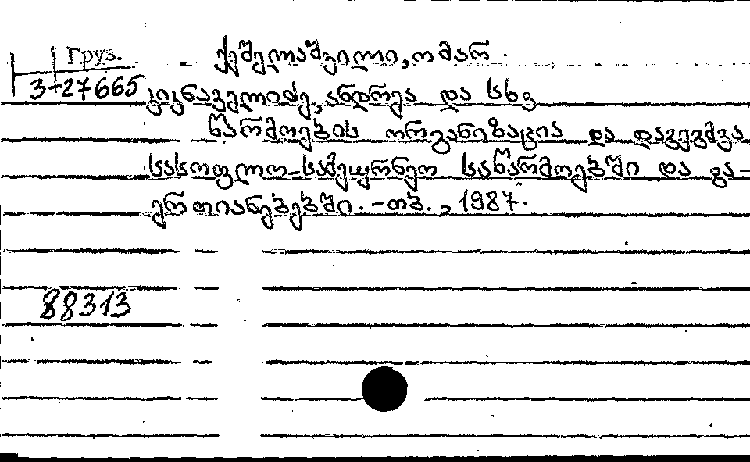 Груз. ქეშელაშვილი, ომარ
3-27665 კიკნაველიძე, ანდრია და სხვ
წარმოების ორგანიზაცია და დაგეგმვა
სასოფლო-სამეურნეო საწარმოებში და გა-
ერთიანებებში. -თბ., 1987.
88313